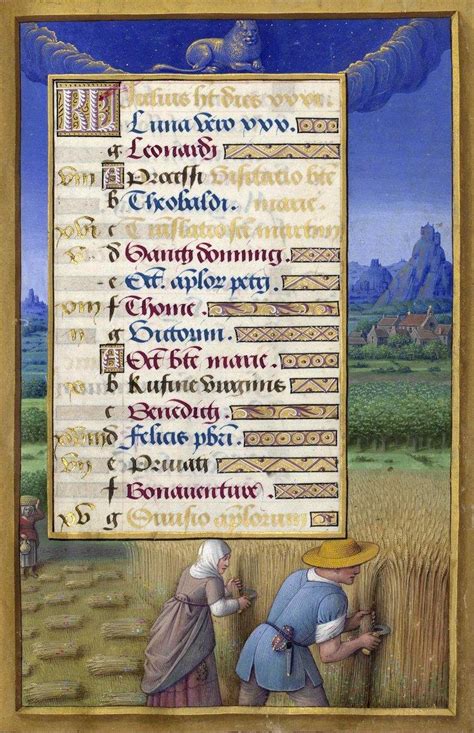 KL Julius ht dies xxxi.
Luna vero xxx.
g Leonardi
viii A Processi Visitatio bte
b Theobaldi. marie.
xvi c Tnslatio sci martini
v d Sancti dominici
e Oct. aplor petri
xiii f Thome
ii g Victorum
A Oct bte marie.
b Rufine virginis
c Benedicti
xviii d Felicis pbri
vii e Privati
f Bonaventure
xv g Divisio aplorum